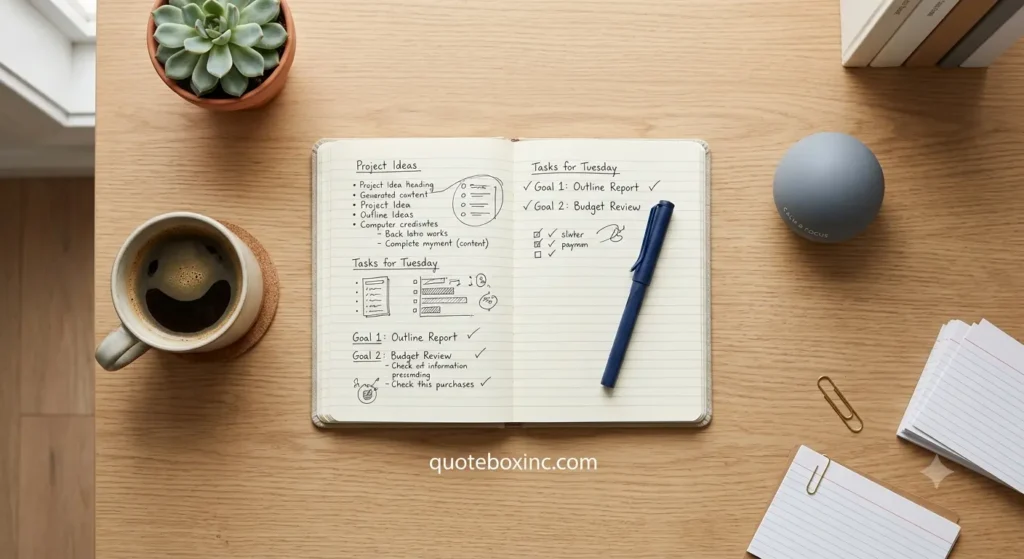 Project Ideas
• Project Idea heading
• Generated content
• Project Idea
• Outline Ideas
• Computer
- Back works
- Complete (content)
Tasks for Tuesday
Goal 1: Outline Report ✓
Goal 2: Budget Review ✓
- Check of information
- Check this purchases ✓
Tasks for Tuesday
✓ Goal 1: Outline Report ✓
✓ Goal 2: Budget Review
CALM & FOCUS
quoteboxinc.com